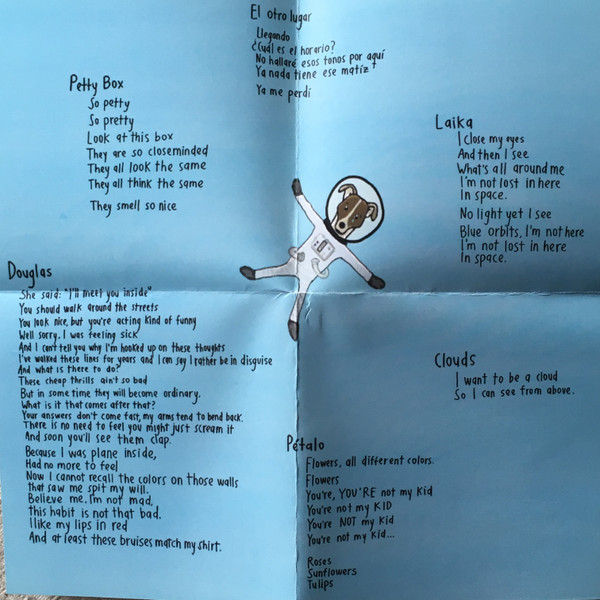 El otro lugar
Llegando
¿Cuál es el horario?
No hallaré esos tonos por aquí
Ya nada tiene ese matíz
Ya me perdí
Petty Box
So petty
So pretty
Look at this box
They are so closeminded
They all look the same
They all think the same
They smell so nice
Laika
I close my eyes
And then I see
What's all around me
I'm not lost in here
In space.
No light yet I see
Blue orbits, I'm not here
I'm not lost in here
In space.
Douglas
She said: "I'll meet you inside"
You should walk around the streets
You look nice, but you're acting kind of funny
Well sorry, I was feeling sick
And I can't tell you why I'm hooked up on these thoughts
I've walked these lines for years and I can say I rather be in disguise
And what is there to do?
These cheap thrills ain't so bad
But in some time they will become ordinary.
What is it that comes after that?
Your answers don't come fast, my arms tend to bend back.
There is no need to feel you might just scream it
And soon you'll see them clap.
Because I was plane inside,
Had no more to feel
Now I cannot recall the colors on those walls
That saw me spit my will.
Believe me, I'm not mad,
this habit is not that bad.
I like my lips in red
And at least these bruises match my shirt.
Clouds
I want to be a cloud
So I can see from above.
Pétalo
Flowers, all different colors.
Flowers
You're, YOU'RE not my Kid
You're not my KID
You're NOT my Kid
You're not my kid...
Roses
Sunflowers
Tulips